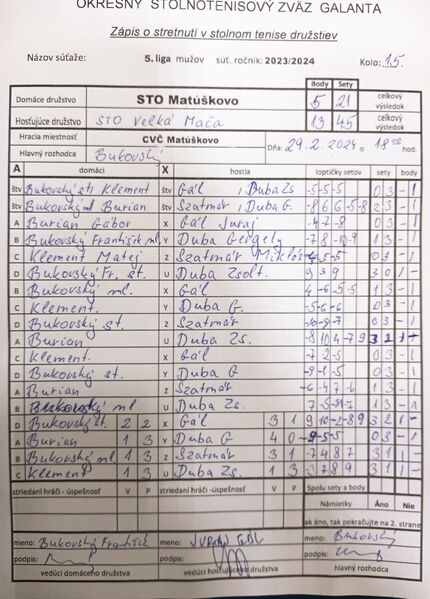 OKRESNÝ STOLNOTENISOVÝ ZVÄZ GALANTA
Zápis o stretnutí v stolnom tenise družstiev
Názov súťaže: 5. liga mužov súť. ročník: 2023/2024 Kolo: 15.
Body Sety
Domáce družstvo STO Matúškovo 5 21 celkový výsledok
Hosťujúce družstvo STO Veľká Mača 13 45 celkový výsledok
Hracia miestnosť CVČ Matúškovo Dňa: 29.2.2024 o 18 00 hod.
Hlavný rozhodca Bukovský
A domáci X hostia loptičky setov sety body
štv Bukovský st. Klement štv Gál , Duba Zs -5-5-5 0 3 - 1
štv Bukovský ml Burian štv Szatmár , Duba G. -8 6 6-5-8 2 3 - 1
A Burian Gábor X Gál Juraj -4-7-8 0 3 - 1
B Bukovský František ml. Y Duba Gergely 1 3 - 1
C Klement Matej Z Szatmár Mikló 0 3 - 1
D Bukovský Fr. st. U Duba Zsolt. 9 3 9 3 0 1 -
B Bukovský ml. X Gál 4-6-5-5 1 3 - 1
C Klement. Y Duba G. -5-6-6 0 3 - 1
D Bukovský st. Z Szatmár 0 3 - 1
A Burian U Duba Zs. -8 10 4-7 9 3 2 1 -
C Klement X Gál -7-2-5 0 3 - 1
D Bukovský st. Y Duba G -9-1-5 0 3 - 1
A Burian Z Szatmár -6-4 7-6 1 3 - 1
B Bukovský ml U Duba Zs. 1 3 - 1
D Bukovský st. 2 2 X Gál 3 1 9 10-2-8 9 3 2 1 -
A Burian 1 3 Y Duba G 4 0 -9-5-5 0 3 - 1
B Bukovský ml. 1 3 Z Szatmár 3 1 -7 4 8 7 3 1 1 -
C Klement 1 3 U Duba Zs. 1 3 -3 7 8 9 3 1 1 -
striedaní hráči - úspešnosť V P striedaní hráči -úspešnosť V P Spolu sety a body
Námietky Áno Nie
ak áno, tak pokračujte na 2. strane
meno: Bukovský František meno: meno: Bukovský
podpis: podpis: podpis:
vedúci domáceho družstva vedúci hosťujúceho družstva hlavný rozhodca